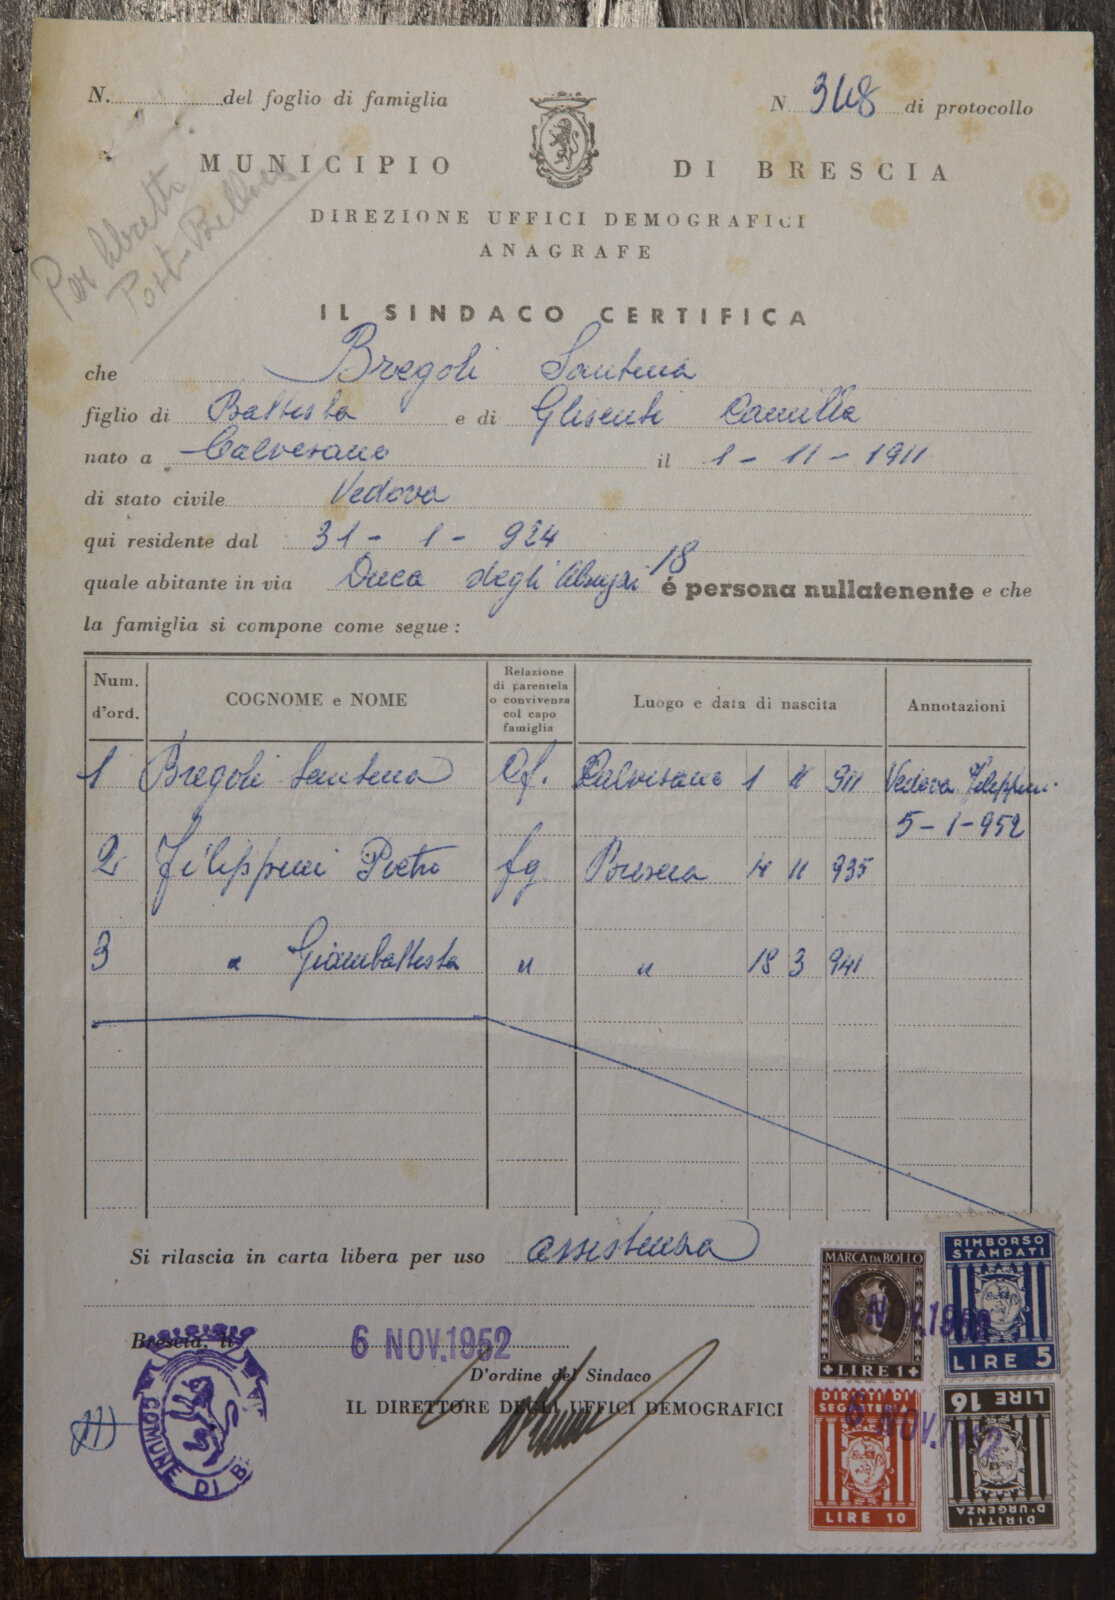 N. del foglio di famiglia
N 348 di protocollo
MUNICIPIO DI BRESCIA
Per libretti
Post-Bellica
DIREZIONE UFFICI DEMOGRAFICI
ANAGRAFE
IL SINDACO CERTIFICA
che Bregoli Santina
figlio di Battista e di Glisenti Camilla
nato a Calvisano il 1-11-1911
di stato civile Vedova
qui residente dal 31-1-924
quale abitante in via Duca degli Abruzzi 18 é persona nullatenente e che
la famiglia si compone come segue :
Num. d'ord. COGNOME e NOME Relazione di parentela o convivenza col capo famiglia Luogo e data di nascita Annotazioni
1 Bregoli Santina Cf. Calvisano 1 11 911 Vedova Filippini
5-1-952
2 Filippini Pietro fg Brescia 11 935
3 " Giambattista " " 18 3 941
Si rilascia in carta libera per uso assistenza
Brescia, lì 6 NOV.1952
D'ordine del Sindaco
IL DIRETTORE DEGLI UFFICI DEMOGRAFICI
COMUNE DI B
MARCA DA BOLLO
LIRE 1
RIMBORSO
STAMPATI
LIRE 5
6 NOV.1952
DIRITTI DI
SEGRETERIA
LIRE 10
DIRITTI
D'URGENZA
LIRE 16
6 NOV.1952